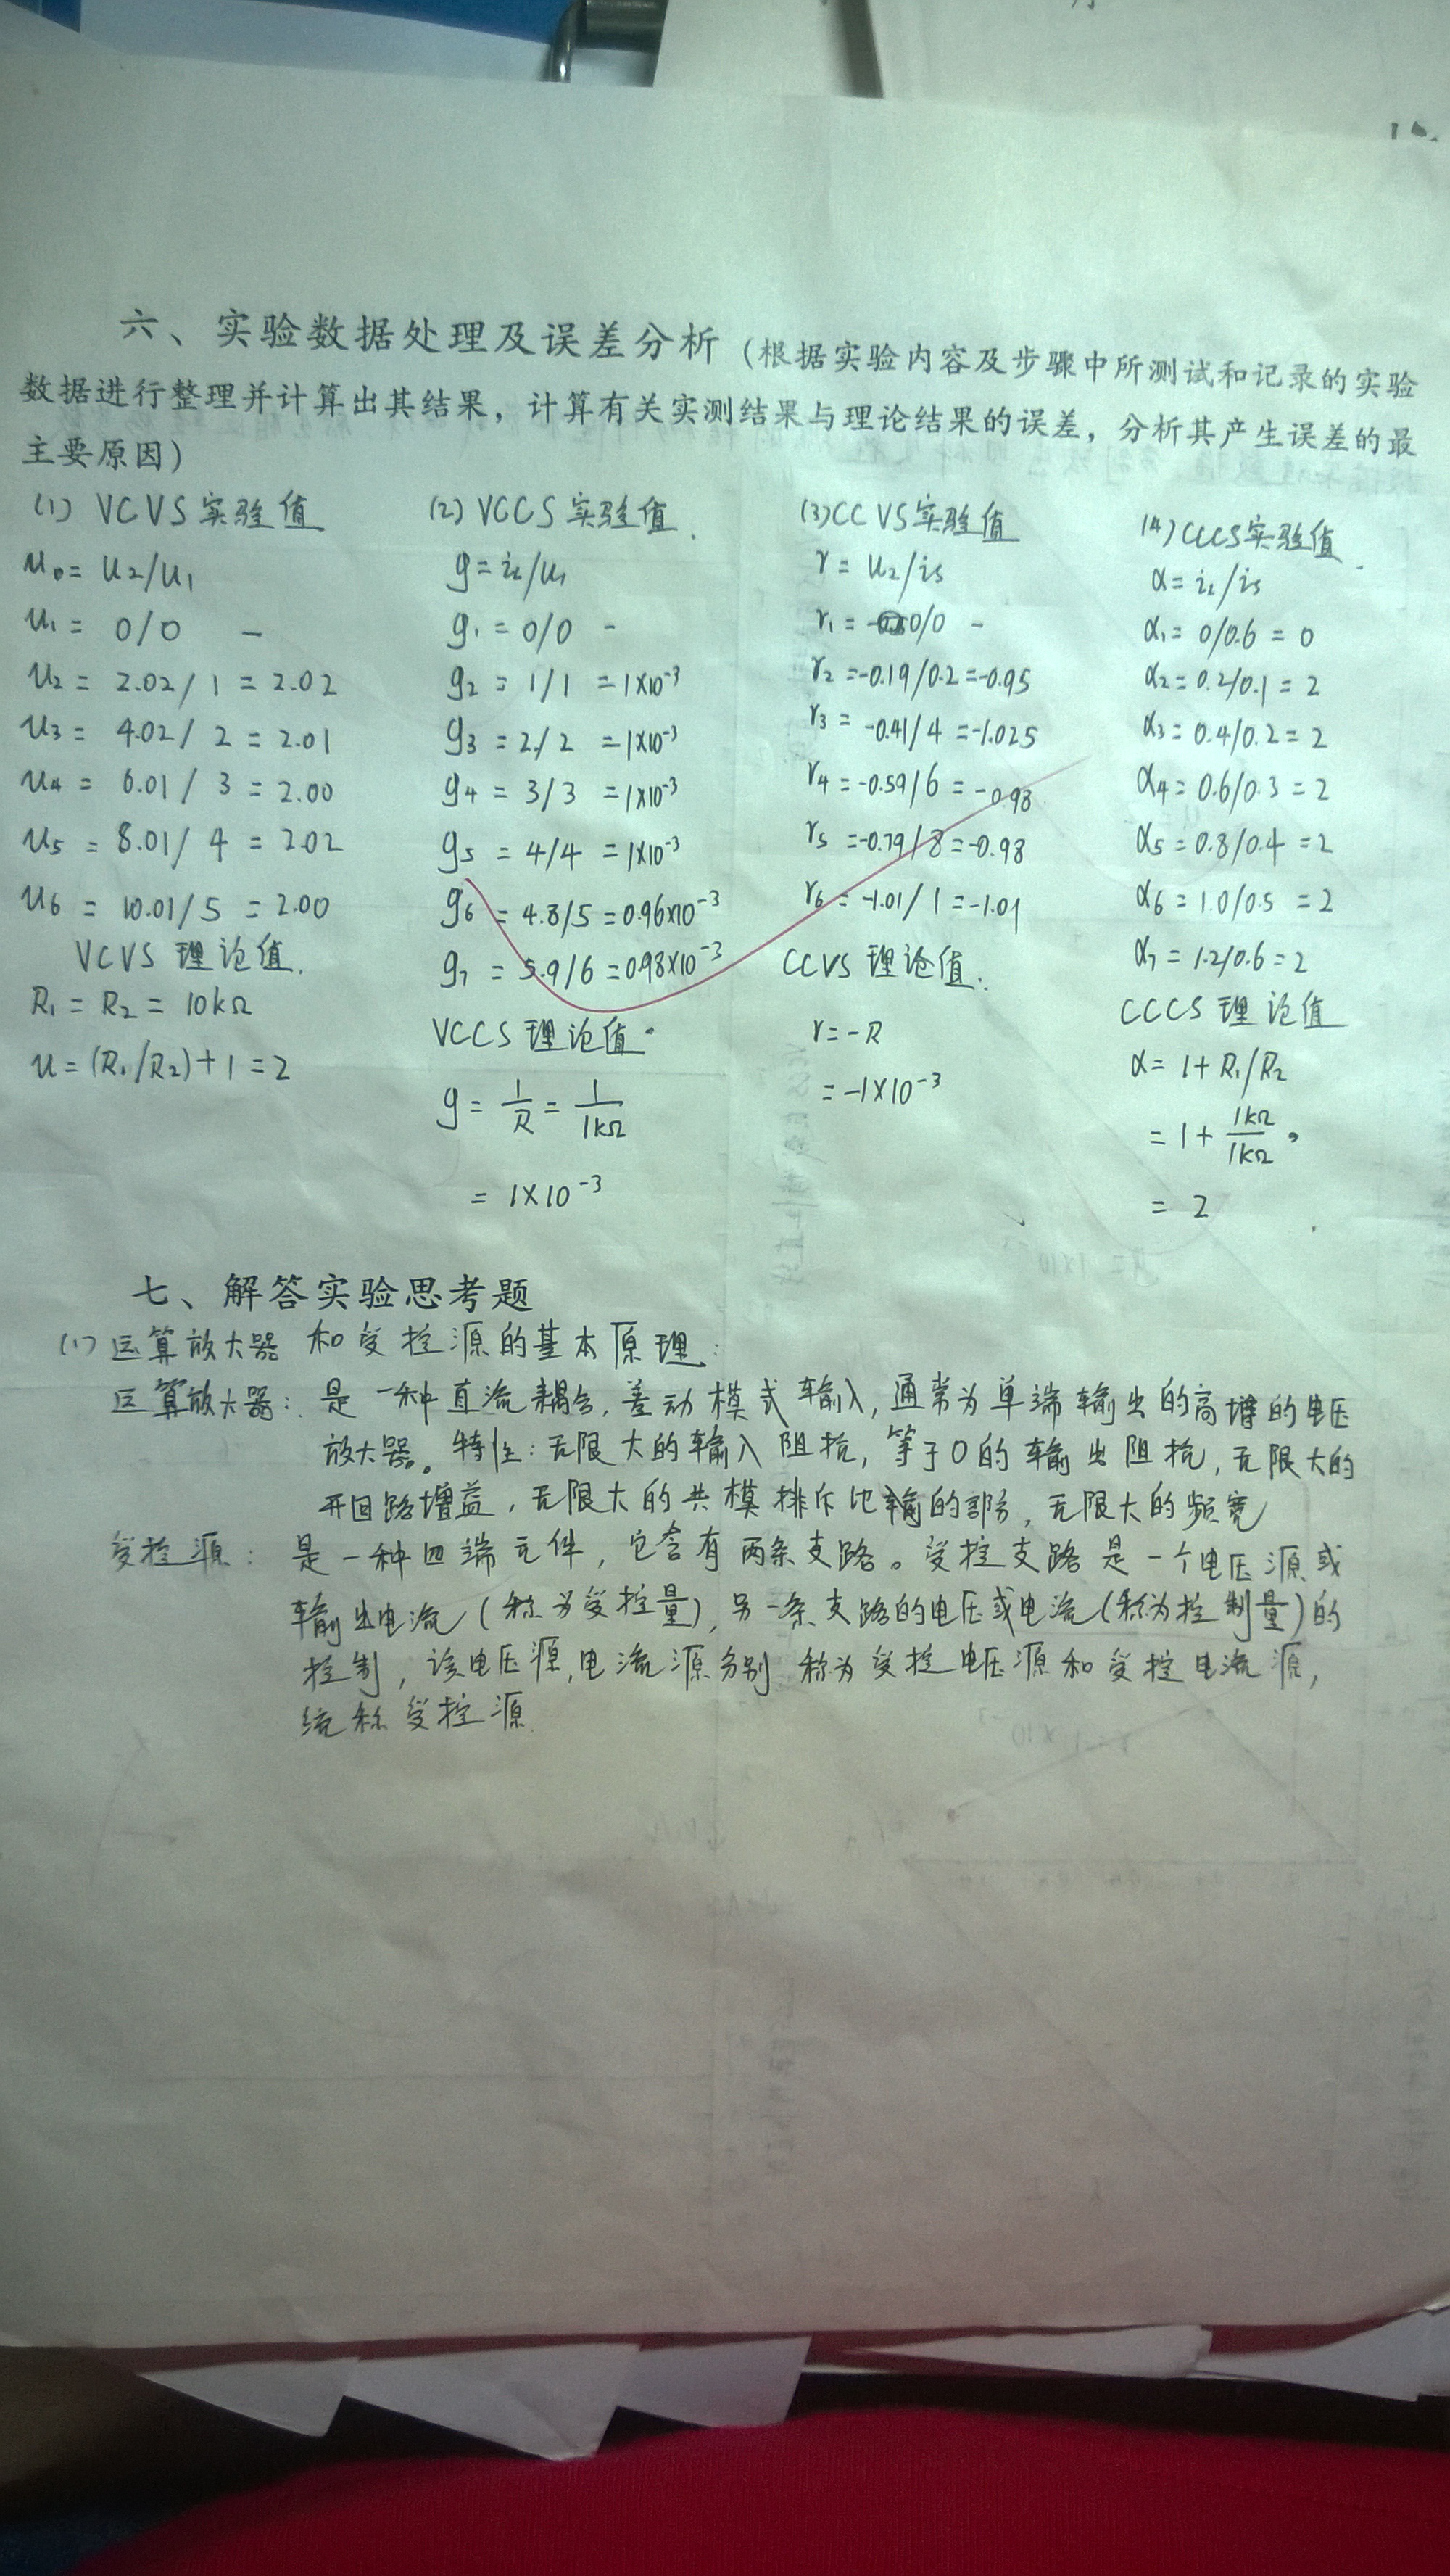 六、实验数据处理及误差分析（根据实验内容及步骤中所测试和记录的实验
数据进行整理并计算出其结果，计算有关实测结果与理论结果的误差，分析其产生误差的最
主要原因）
(1) VCVS实验值
u₀= u₂/u₁
u₁ = 0/0 －
u₂ = 2.02/1 = 2.02
u₃ = 4.02/2 = 2.01
u₄ = 6.01/3 = 2.00
u₅ = 8.01/4 = 2.02
u₆ = 10.01/5 = 2.00
VCVS 理论值.
R₁ = R₂ = 10kΩ
u = (R₁/R₂)+1 = 2
(2) VCCS实验值.
g = i₂/u₁
g₁ = 0/0 －
g₂ = 1/1 = 1×10⁻³
g₃ = 2/2 = 1×10⁻³
g₄ = 3/3 = 1×10⁻³
g₅ = 4/4 = 1×10⁻³
g₆ = 4.8/5 = 0.96×10⁻³
g₇ = 5.9/6 = 0.98×10⁻³
VCCS 理论值.
g = 1/R = 1/1kΩ
= 1×10⁻³
(3) CCVS实验值
r = u₂/is
r₁ = 0/0 －
r₂ = -0.19/0.2 = -0.95
r₃ = -0.41/4 = -1.025
r₄ = -0.59/6 = -0.98
r₅ = -0.79/8 = -0.98
r₆ = -1.01/1 = -1.01
CCVS 理论值.
r = -R
= -1×10⁻³
(4) CCCS实验值.
α = i₂/is
α₁ = 0/0.6 = 0
α₂ = 0.2/0.1 = 2
α₃ = 0.4/0.2 = 2
α₄ = 0.6/0.3 = 2
α₅ = 0.8/0.4 = 2
α₆ = 1.0/0.5 = 2
α₇ = 1.2/0.6 = 2
CCCS 理论值
α = 1 + R₁/R₂
= 1 + 1kΩ/1kΩ
= 2
七、解答实验思考题
(1) 运算放大器 和受控源的基本原理：
运算放大器：是一种直流耦合，差动模式输入，通常为单端输出的高增的电压
放大器。特性：无限大的输入阻抗，等于0的输出阻抗，无限大的
开回路增益，无限大的共模排斥比的部分，无限大的频宽
受控源：是一种四端元件，它含有两条支路。受控支路是一个电压源或
输出电流（称为受控量），另一条支路的电压或电流（称为控制量）的
控制，该电压源，电流源分别称为受控电压源和受控电流源，
统称受控源.